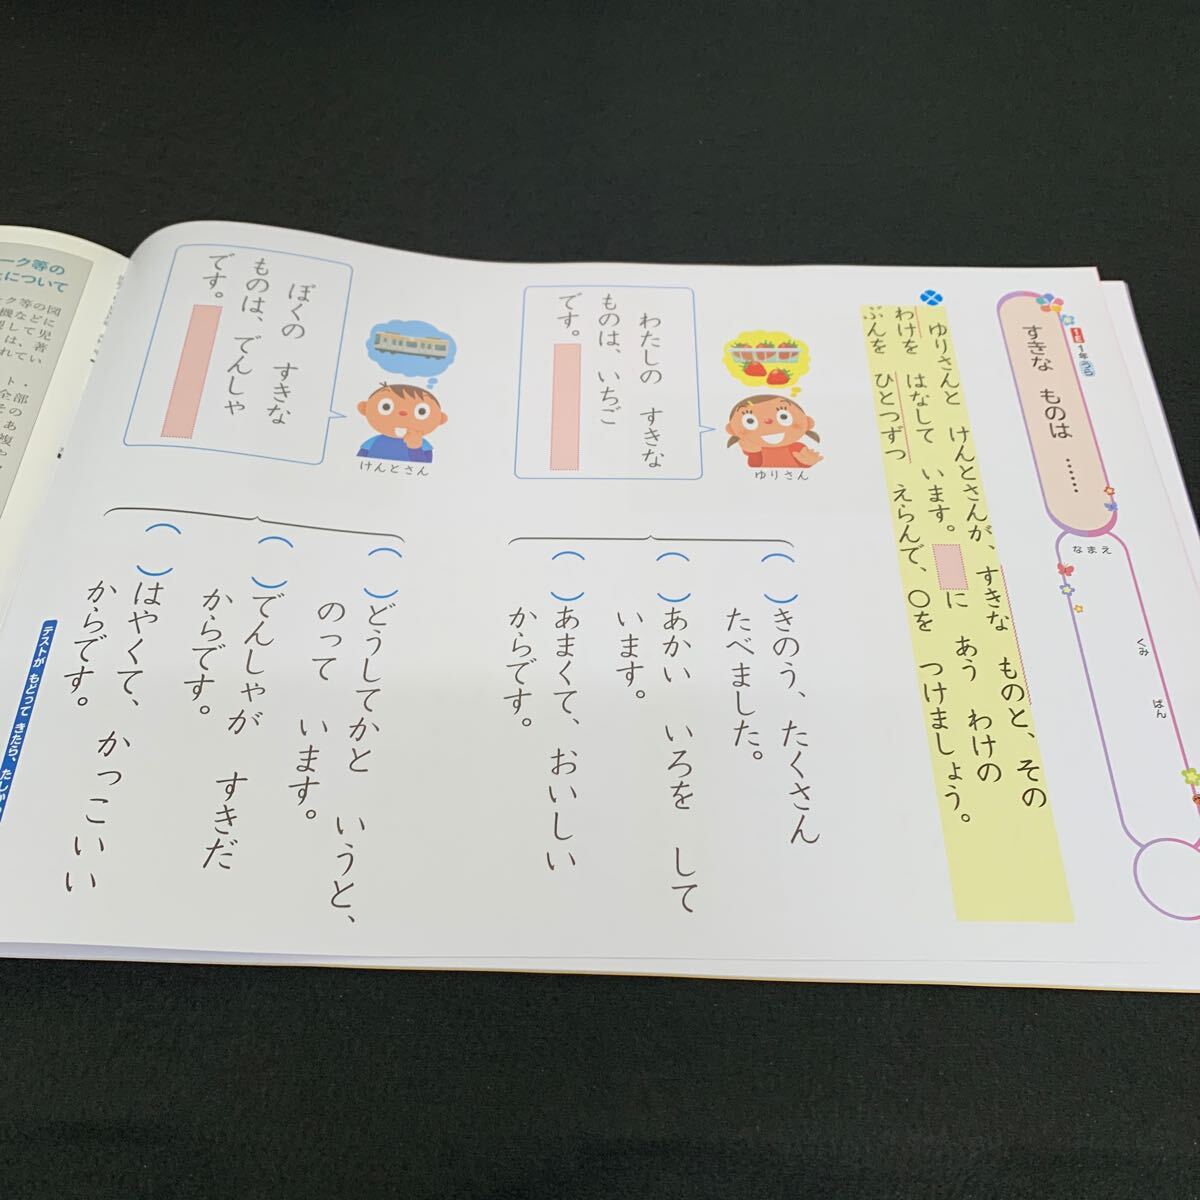 すきな ものは ……
1年 うら
なまえ
くみ
ばん
ゆりさんと けんとさんが、すきな ものと、その
わけを はなして います。 に あう わけの
ぶんを ひとつずつ えらんで、○を つけましょう。
ゆりさん
わたしの すきな
ものは、いちご
です。
( )きのう、たくさん
たべました。
( )あかい いろを して
います。
( )あまくて、おいしい
からです。
けんとさん
ぼくの すきな
ものは、でんしゃ
です。
( )どうしてかと いうと、
のって います。
( )でんしゃが すきだ
からです。
( )はやくて、かっこいい
からです。
テストが もどって きたら、たしか
ーク等の
について
ーク等の図
機などに
して児
は、著
れてい
ト・
全部
その
あ
複
や